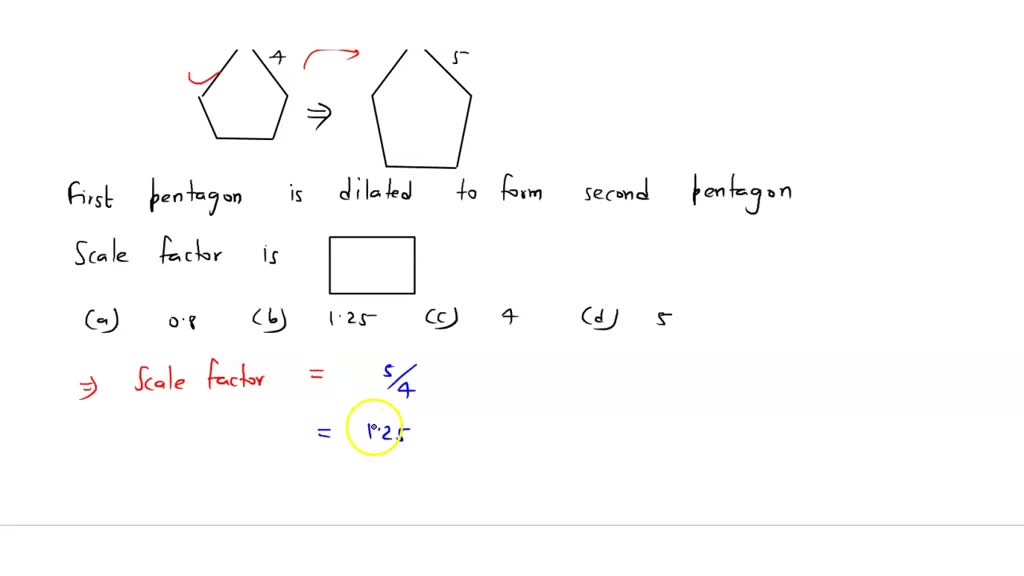 4 ⇒ 5
First pentagon is dilated to form second pentagon
Scale factor is
(a) 0.8 (b) 1.25 (c) 4 (d) 5
⇒ Scale factor = 5/4
= 1.25